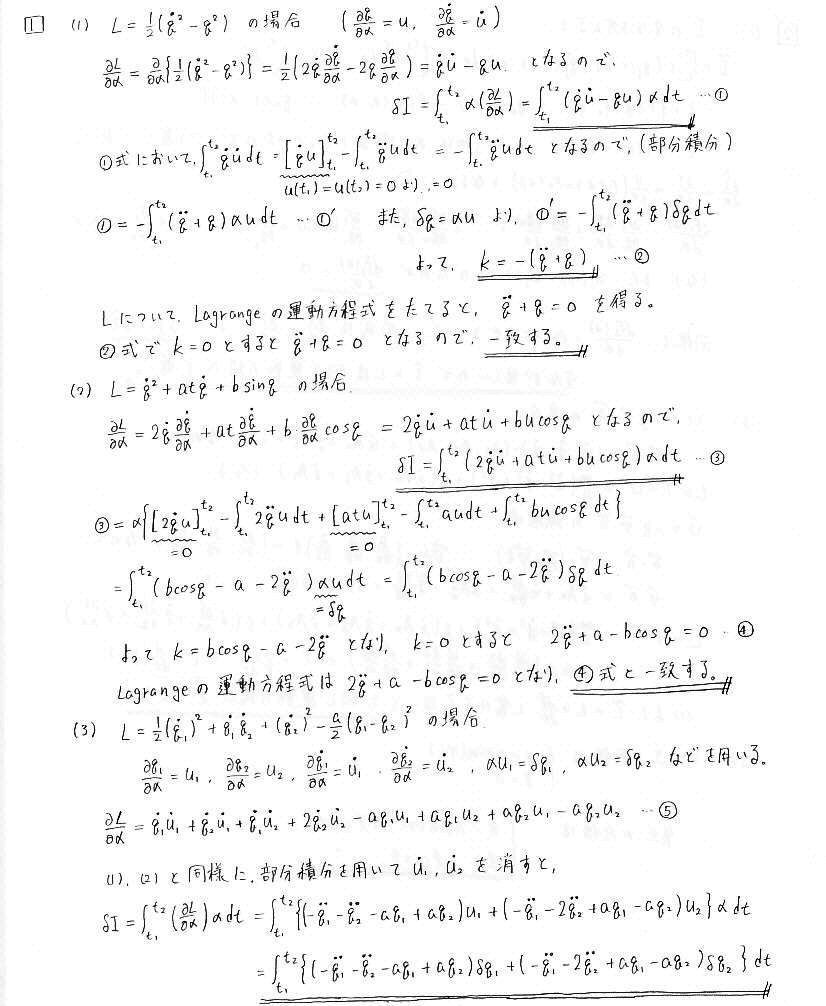 1 (1) L = 1/2(q̇² - q²) の場合 (∂q/∂α = u, ∂q̇/∂α = u̇)
∂L/∂α = ∂/∂α{1/2(q̇² - q²)} = 1/2(2q̇ ∂q̇/∂α - 2q ∂q/∂α) = q̇u̇ - qu. となるので、
δI = ∫_{t₁}^{t₂} α(∂L/∂α) = ∫_{t₁}^{t₂} (q̇u̇ - qu) α dt …①
①式において、∫_{t₁}^{t₂} q̇u̇ dt = [q̇u]_{t₁}^{t₂} - ∫_{t₁}^{t₂} q̈u dt = -∫_{t₁}^{t₂} q̈u dt となるので、(部分積分)
u(t₁) = u(t₂) = 0 より、= 0
① = -∫_{t₁}^{t₂} (q̈ + q) αu dt …①′ また、δq = αu より、①′ = -∫_{t₁}^{t₂} (q̈ + q) δq dt
よって、 k = -(q̈ + q) …②
Lについて、Lagrangeの運動方程式をたてると、 q̈ + q = 0 を得る。
②式で k = 0 とすると q̈ + q = 0 となるので、一致する。
(2) L = q̇² + atq̇ + b sin q の場合.
∂L/∂α = 2q̇ ∂q̇/∂α + at ∂q̇/∂α + b・∂q/∂α cos q = 2q̇u̇ + atu̇ + bu cos q となるので、
δI = ∫_{t₁}^{t₂} (2q̇u̇ + atu̇ + bu cos q) α dt …③
③ = α{[2q̇u]_{t₁}^{t₂} - ∫_{t₁}^{t₂} 2q̈u dt + [atu]_{t₁}^{t₂} - ∫_{t₁}^{t₂} au dt + ∫_{t₁}^{t₂} bu cos q dt}
= 0 = 0
= ∫_{t₁}^{t₂} (b cos q - a - 2q̈) αu dt = ∫_{t₁}^{t₂} (b cos q - a - 2q̈) δq dt
= δq
よって k = b cos q - a - 2q̈ となり、 k = 0 とすると 2q̈ + a - b cos q = 0 …④
Lagrangeの運動方程式は 2q̈ + a - b cos q = 0 となり、④式と一致する。
(3) L = 1/2(q̇₁)² + q̇₁q̇₂ + (q̇₂)² - a/2(q₁ - q₂)² の場合.
∂q₁/∂α = u₁, ∂q₂/∂α = u₂, ∂q̇₁/∂α = u̇₁, ∂q̇₂/∂α = u̇₂, αu₁ = δq₁, αu₂ = δq₂ などを用いる。
∂L/∂α = q̇₁u̇₁ + q̇₂u̇₁ + q̇₁u̇₂ + 2q̇₂u̇₂ - aq₁u₁ + aq₁u₂ + aq₂u₁ - aq₂u₂ …⑤
(1), (2) と同様に、部分積分を用いて u̇₁, u̇₂ を消すと、
δI = ∫_{t₁}^{t₂} (∂L/∂α) α dt = ∫_{t₁}^{t₂} {(-q̈₁ - q̈₂ - aq₁ + aq₂)u₁ + (-q̈₁ - 2q̈₂ + aq₁ - aq₂)u₂} α dt
= ∫_{t₁}^{t₂} {(-q̈₁ - q̈₂ - aq₁ + aq₂) δq₁ + (-q̈₁ - 2q̈₂ + aq₁ - aq₂) δq₂} dt